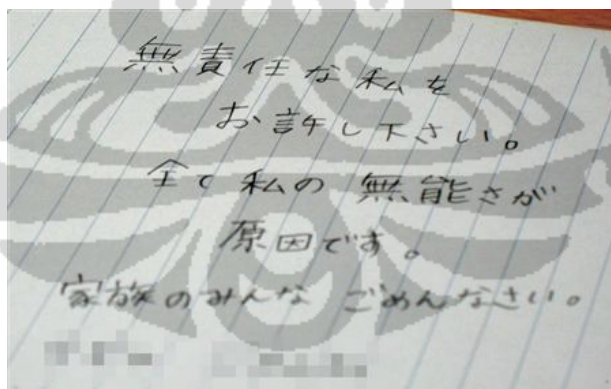 無責任な私を
お許し下さい。
全て私の無能さが
原因です。
家族のみんな ごめんなさい。